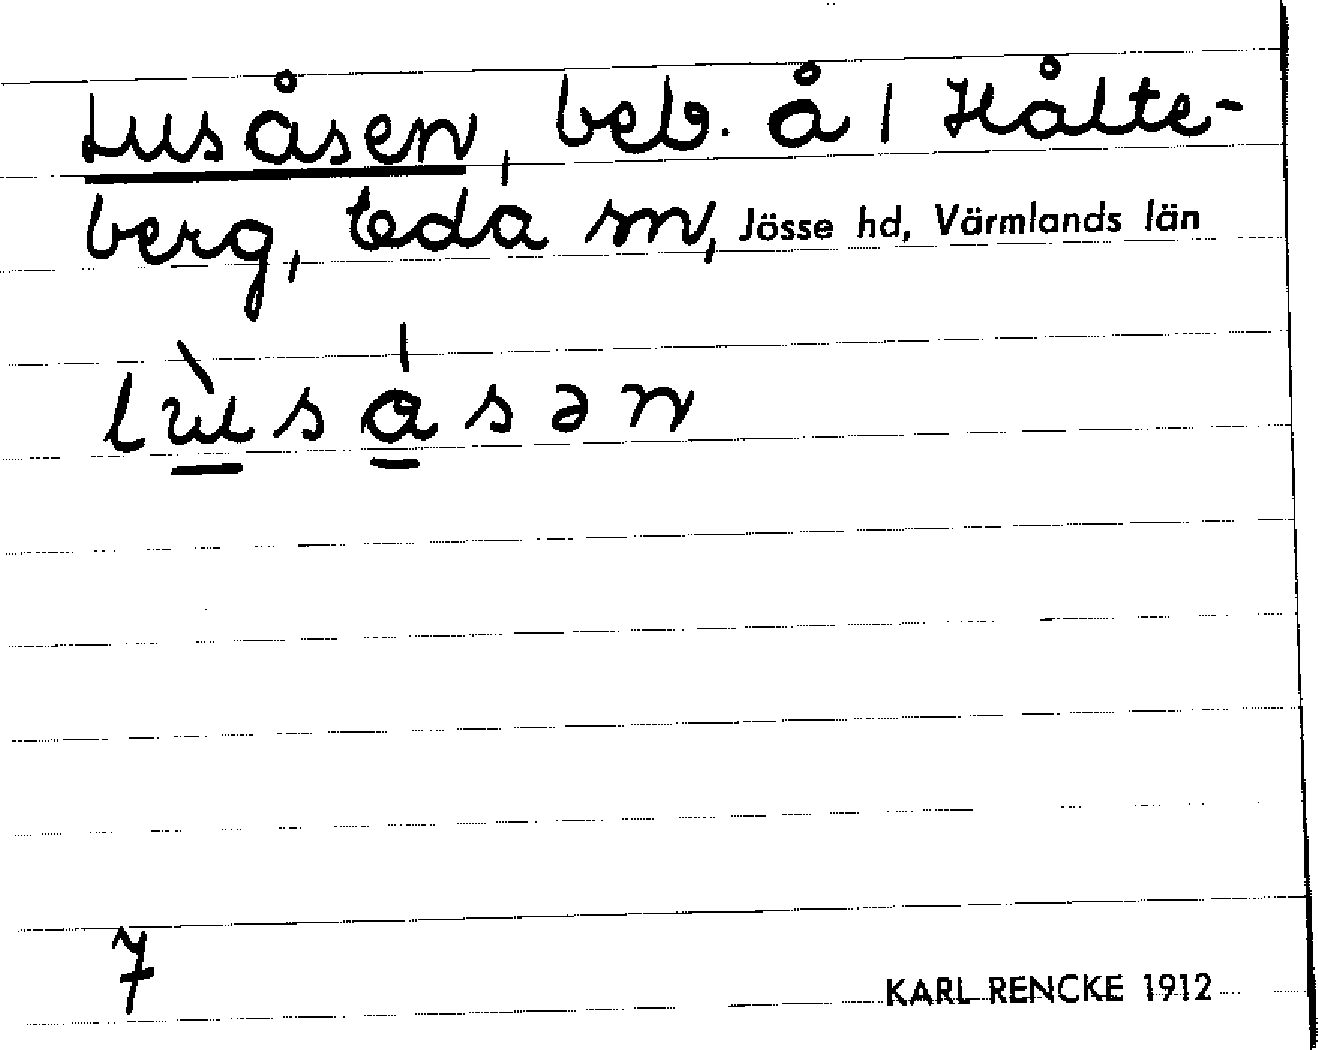 Lusåsen, beb. å 1 Hålte-
berg, Eda sn, Jösse hd, Värmlands län
lùsásən
7
KARL RENCKE 1912